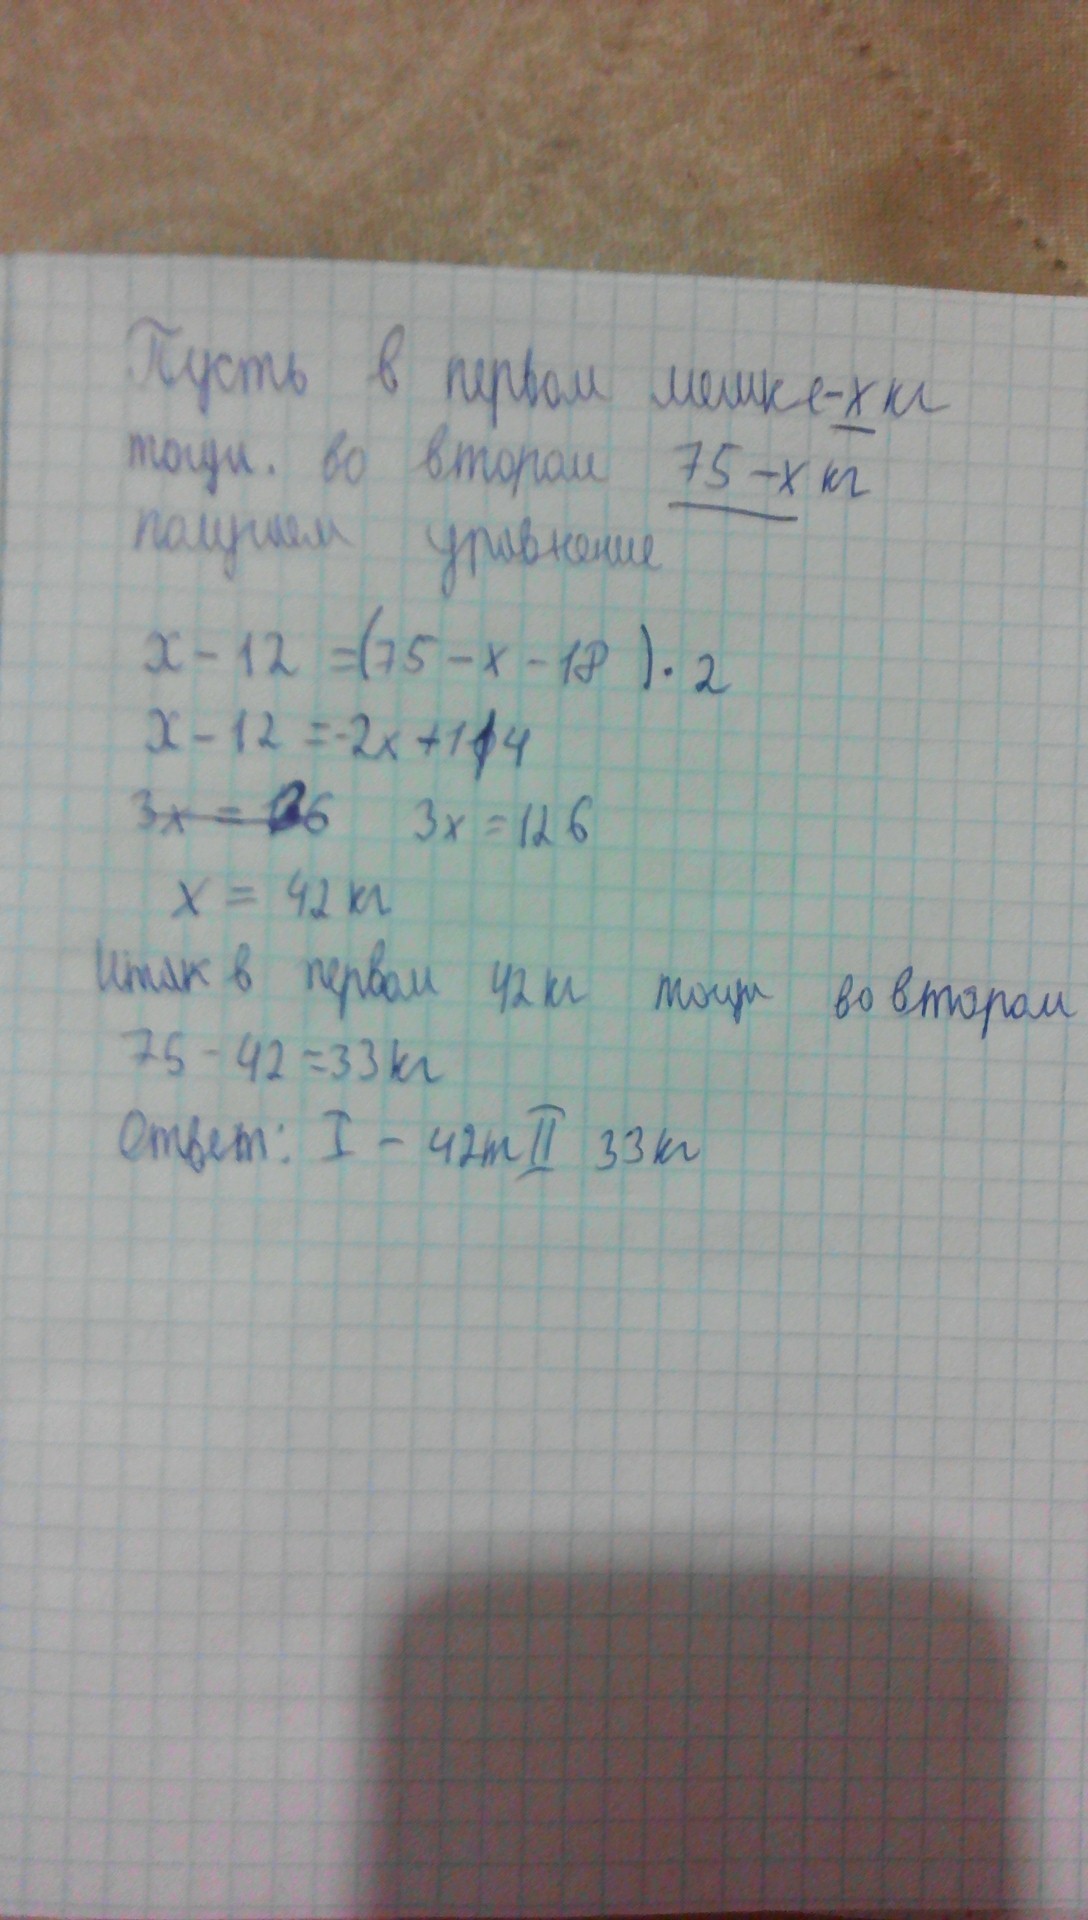 Пусть в первом мешке - х кг
тогда. во втором 75 - х кг
получаем уравнение
х - 12 = (75 - х - 18) · 2
х - 12 = -2х + 114
3х = 126
х = 42 кг
Итак в первом 42 кг тогда во втором
75 - 42 = 33 кг
Ответ: I - 42 II 33 кг